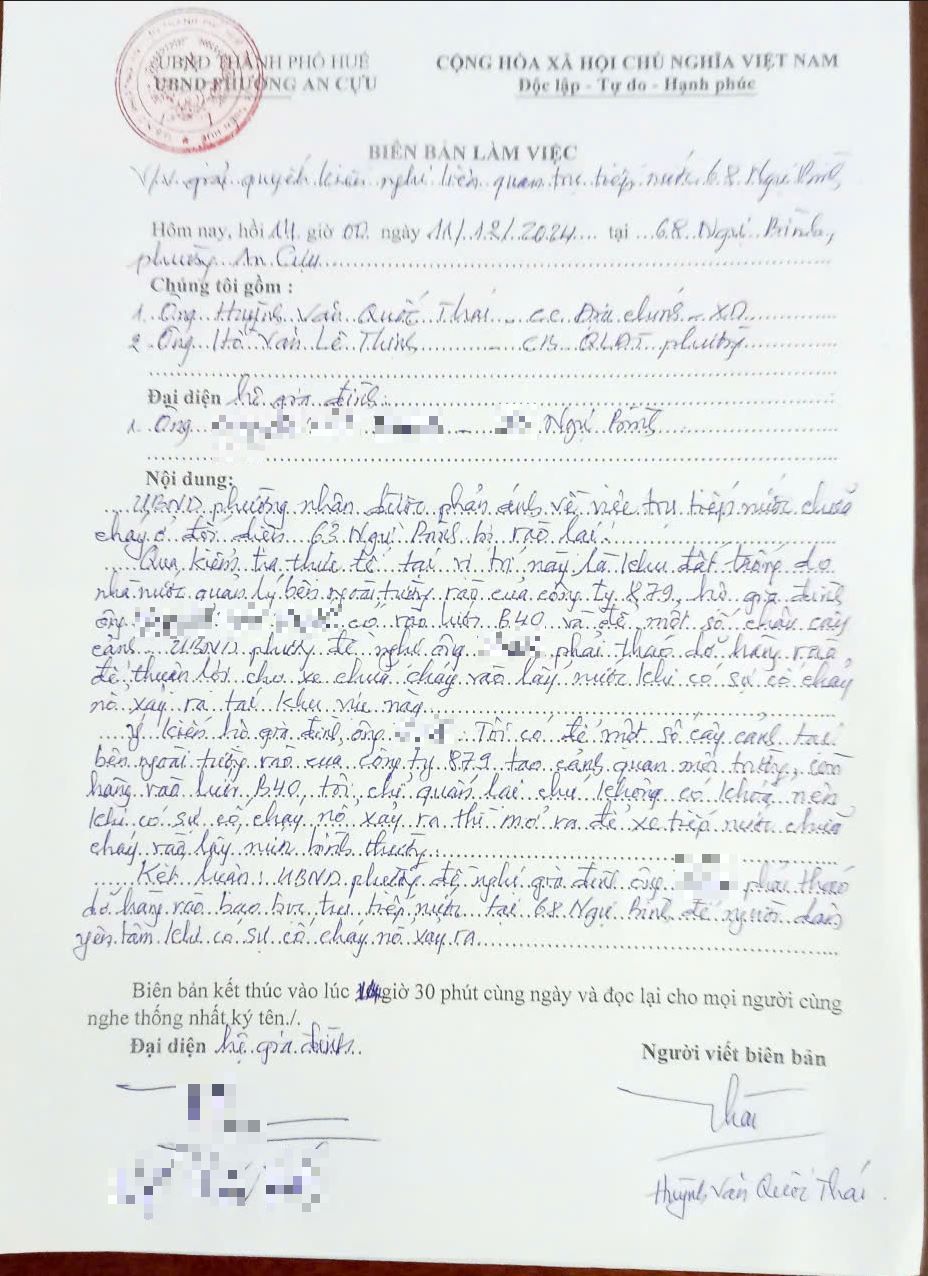 UBND THÀNH PHỐ HUẾ
UBND PHƯỜNG AN CỰU
CỘNG HÒA XÃ HỘI CHỦ NGHĨA VIỆT NAM
Độc lập - Tự do - Hạnh phúc
BIÊN BẢN LÀM VIỆC
V/v giải quyết kiến nghị liên quan trụ tiếp nước 68 Ngự Bình,
Hôm nay, hồi 14 giờ 00 ngày 11/12/2024 tại 68 Ngự Bình,
phường An Cựu
Chúng tôi gồm :
1. Ông Huỳnh Văn Quốc Thái - CC Địa chính - XD
2. Ông Hồ Văn Lê Thịnh - CB QLĐT phường
Đại diện hộ gia đình:
1. Ông Ngự Bình
Nội dung:
UBND phường nhận được phản ánh về việc trụ tiếp nước chữa
cháy ở đối diện 63 Ngự Bình bị rào lại.
Qua kiểm tra thực tế tại vị trí này là khu đất trống do
nhà nước quản lý bên ngoài tường rào của công ty 879, hộ gia đình
ông có rào lưới B40 và để một số chậu cây
cảnh. UBND phường đề nghị ông phải tháo dỡ hàng rào
để thuận lợi cho xe chữa cháy vào lấy nước khi có sự cố cháy
nổ xảy ra tại khu vực này
Ý kiến hộ gia đình, ông : Tôi có để một số cây cảnh tại
bên ngoài tường rào của công ty 879 tạo cảnh quan môi trường, còn
hàng rào lưới B40, tôi chỉ quấn lại chứ không có khóa nên
khi có sự cố cháy nổ xảy ra thì mở ra để xe tiếp nước chữa
cháy vào lấy nước bình thường.
Kết luận: UBND phường đề nghị gia đình ông phải tháo
dỡ hàng rào bao bọc trụ tiếp nước tại 68 Ngự Bình để người dân
yên tâm khi có sự cố cháy nổ xảy ra.
Biên bản kết thúc vào lúc 14 giờ 30 phút cùng ngày và đọc lại cho mọi người cùng
nghe thống nhất ký tên./.
Đại diện hộ gia đình
Người viết biên bản
Thái
Huỳnh Văn Quốc Thái